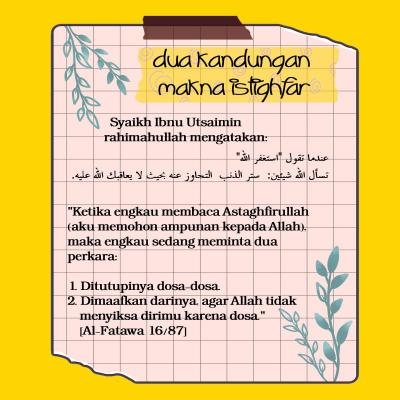 dua kandungan
makna istighfar
Syaikh Ibnu Utsaimin
rahimahullah mengatakan:
عندما تقول "استغفر الله"
تسأل الله شيئين: ستر الذنب التجاوز عنه بحيث لا يعاقبك الله عليه.
"Ketika engkau membaca Astaghfirullah
(aku memohon ampunan kepada Allah),
maka engkau sedang meminta dua
perkara:
1. Ditutupinya dosa-dosa.
2. Dimaafkan darinya, agar Allah tidak
menyiksa dirimu karena dosa."
[Al-Fatawa 16/87]